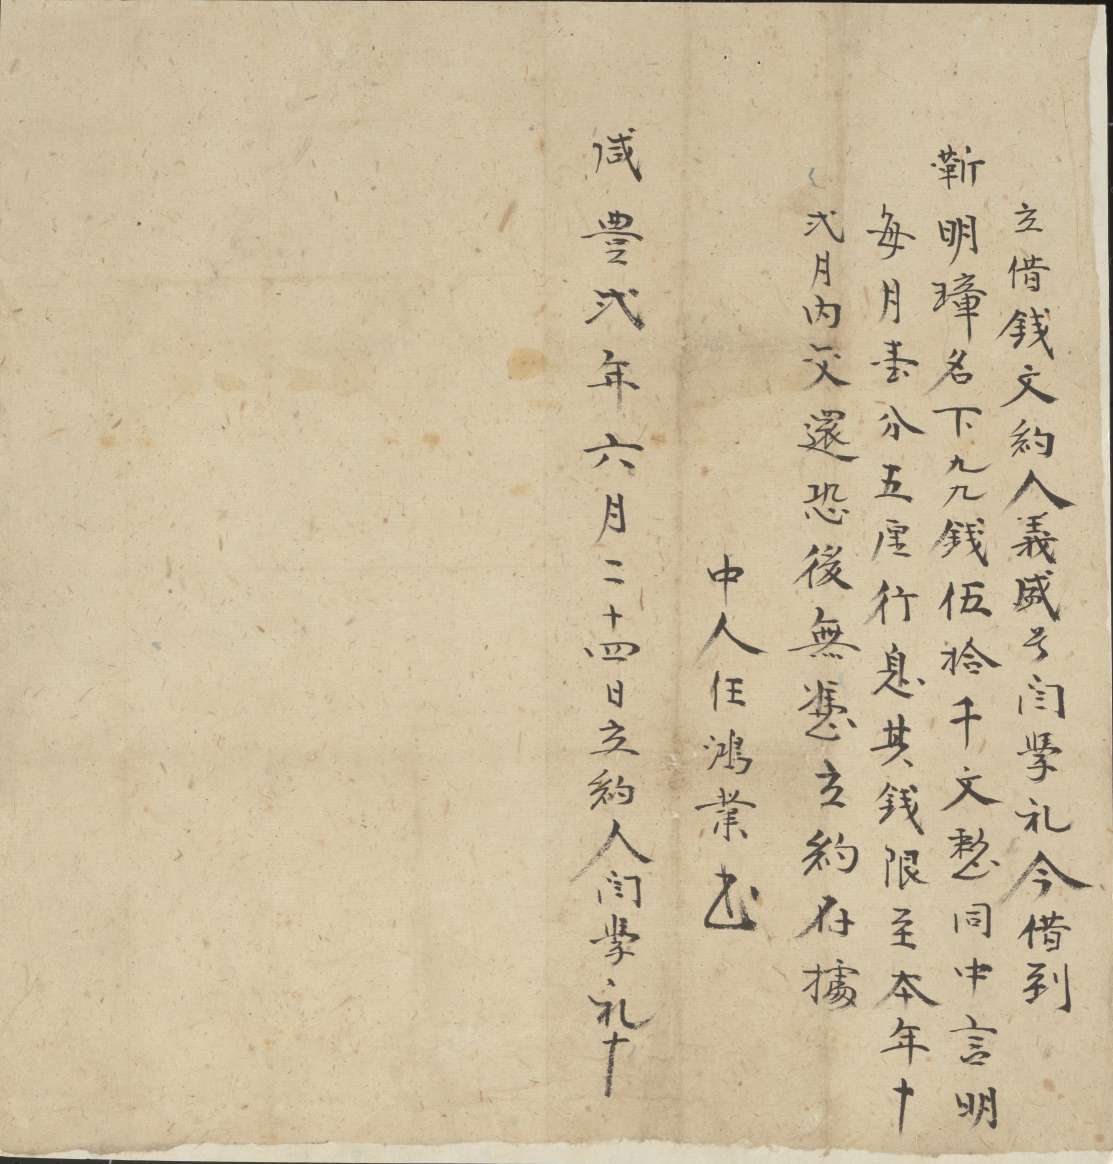 立借錢文約人義盛号闫學礼今借到
靳明璋名下九九錢伍拾千文整同中言明
每月壹分五厘行息其錢限至本年十
弍月内交還恐後無憑立約存據
中人任鴻業
咸豊弍年六月二十四日立約人闫學礼十